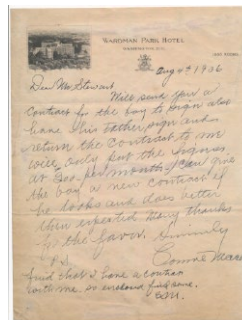 WARDMAN PARK HOTEL
WASHINGTON, D.C.
Aug 4th 1936
Dear Mr Stewart
Will send you a
contract for the boy to sign also
have his Father sign and
return the contract to me
will only put the
at 300 per month I can give
the boy a new contract if
he looks and does better
then expected Many thanks
for the favor. Sincerely
P.S.
find that I have a contract
with me. so enclosed find same.